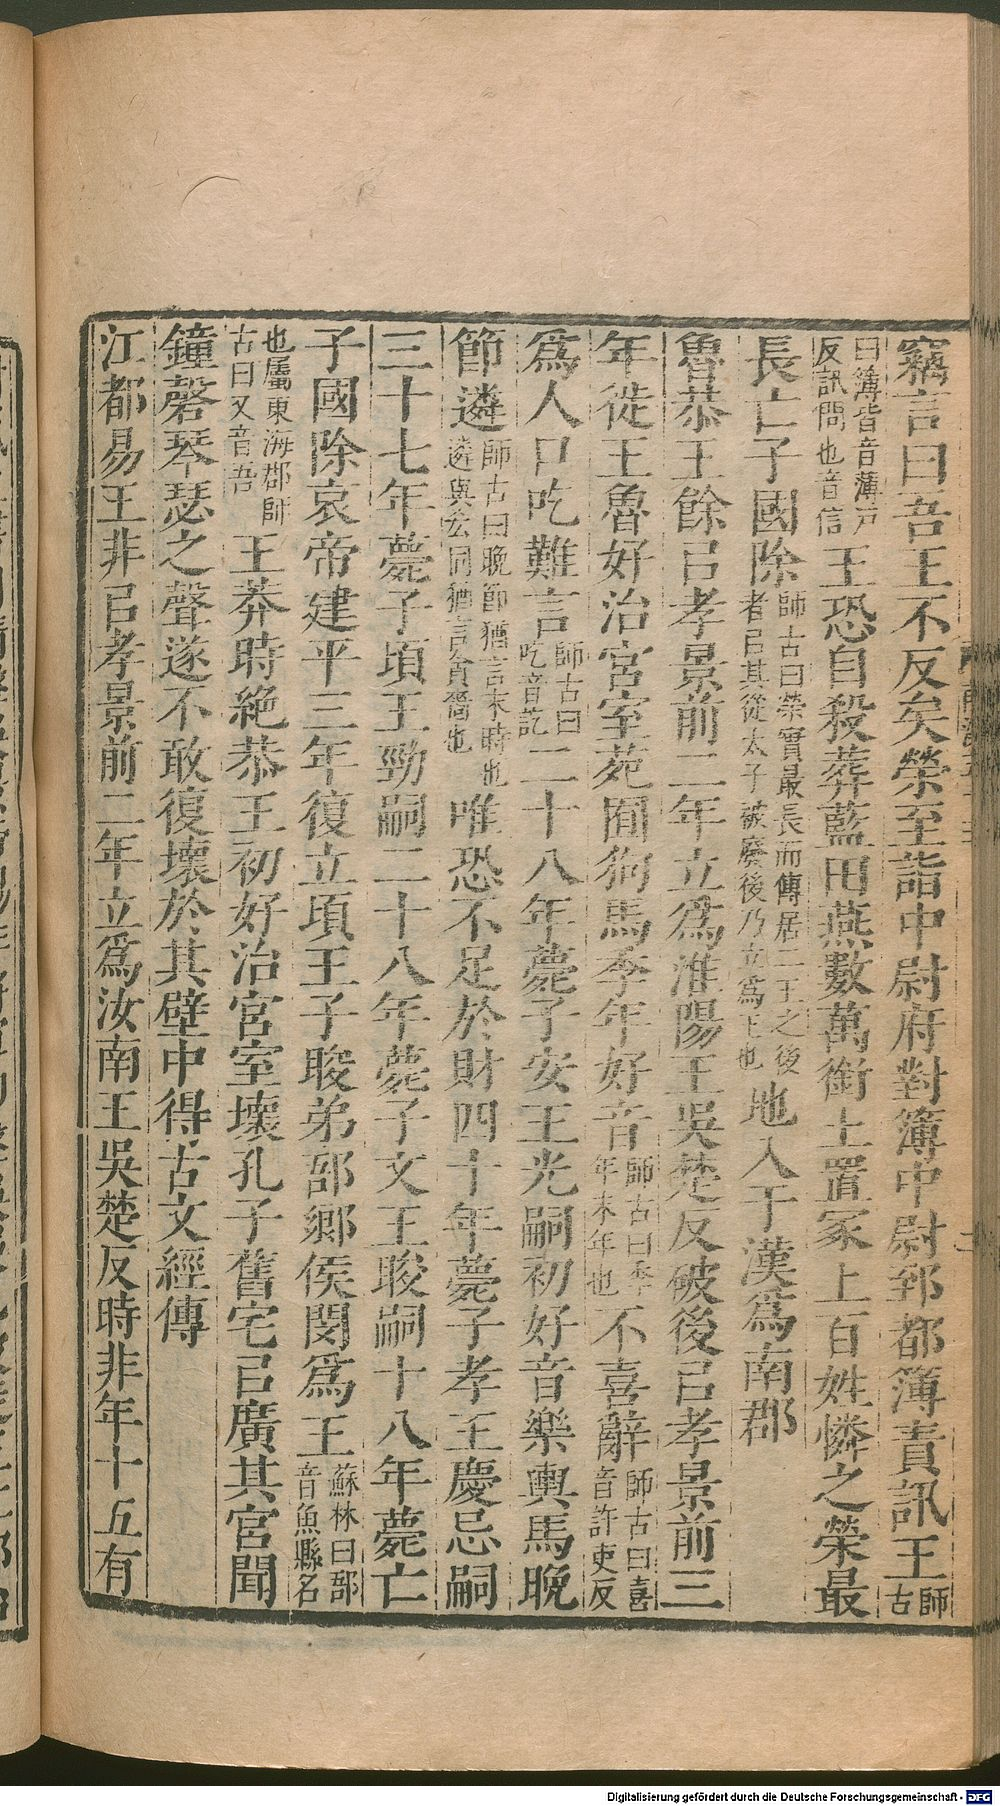 竊言曰吾王不反矣榮至詣中尉府對簿中尉郅都簿責訊王師古
曰簿皆音薄戸反訊問也音信王恐自殺葬藍田燕數萬銜土置冢上百姓憐之榮最
長亡子國除師古曰榮實最長而傳居二王之後者㠯其從太子被廢後乃立爲王也地入于漢爲南郡
魯恭王餘㠯孝景前二年立爲淮陽王吳楚反破後㠯孝景前三
年徙王魯好治宮室苑囿狗馬季年好音師古曰季年末年也不喜辭師古曰喜音許吏反
爲人口吃難言師古曰吃音訖二十八年薨子安王光嗣初好音樂輿馬晚
節遴師古曰晚節猶言末時也遴與吝同猶言貪嗇也唯恐不足於財四十年薨子孝王慶忌嗣
三十七年薨子頃王勁嗣二十八年薨子文王睃嗣十八年薨亡
子國除哀帝建平三年復立頃王子睃弟郚鄉侯閔爲王蘇林曰郚音魚縣名
也屬東海郡師古曰又音吾王莽時絕恭王初好治宮室壞孔子舊宅㠯廣其宮聞
鐘磬琴瑟之聲遂不敢復壞於其壁中得古文經傳
江都易王非㠯孝景前二年立爲汝南王吳楚反時非年十五有
Digitalisierung gefördert durch die Deutsche Forschungsgemeinschaft - DFG